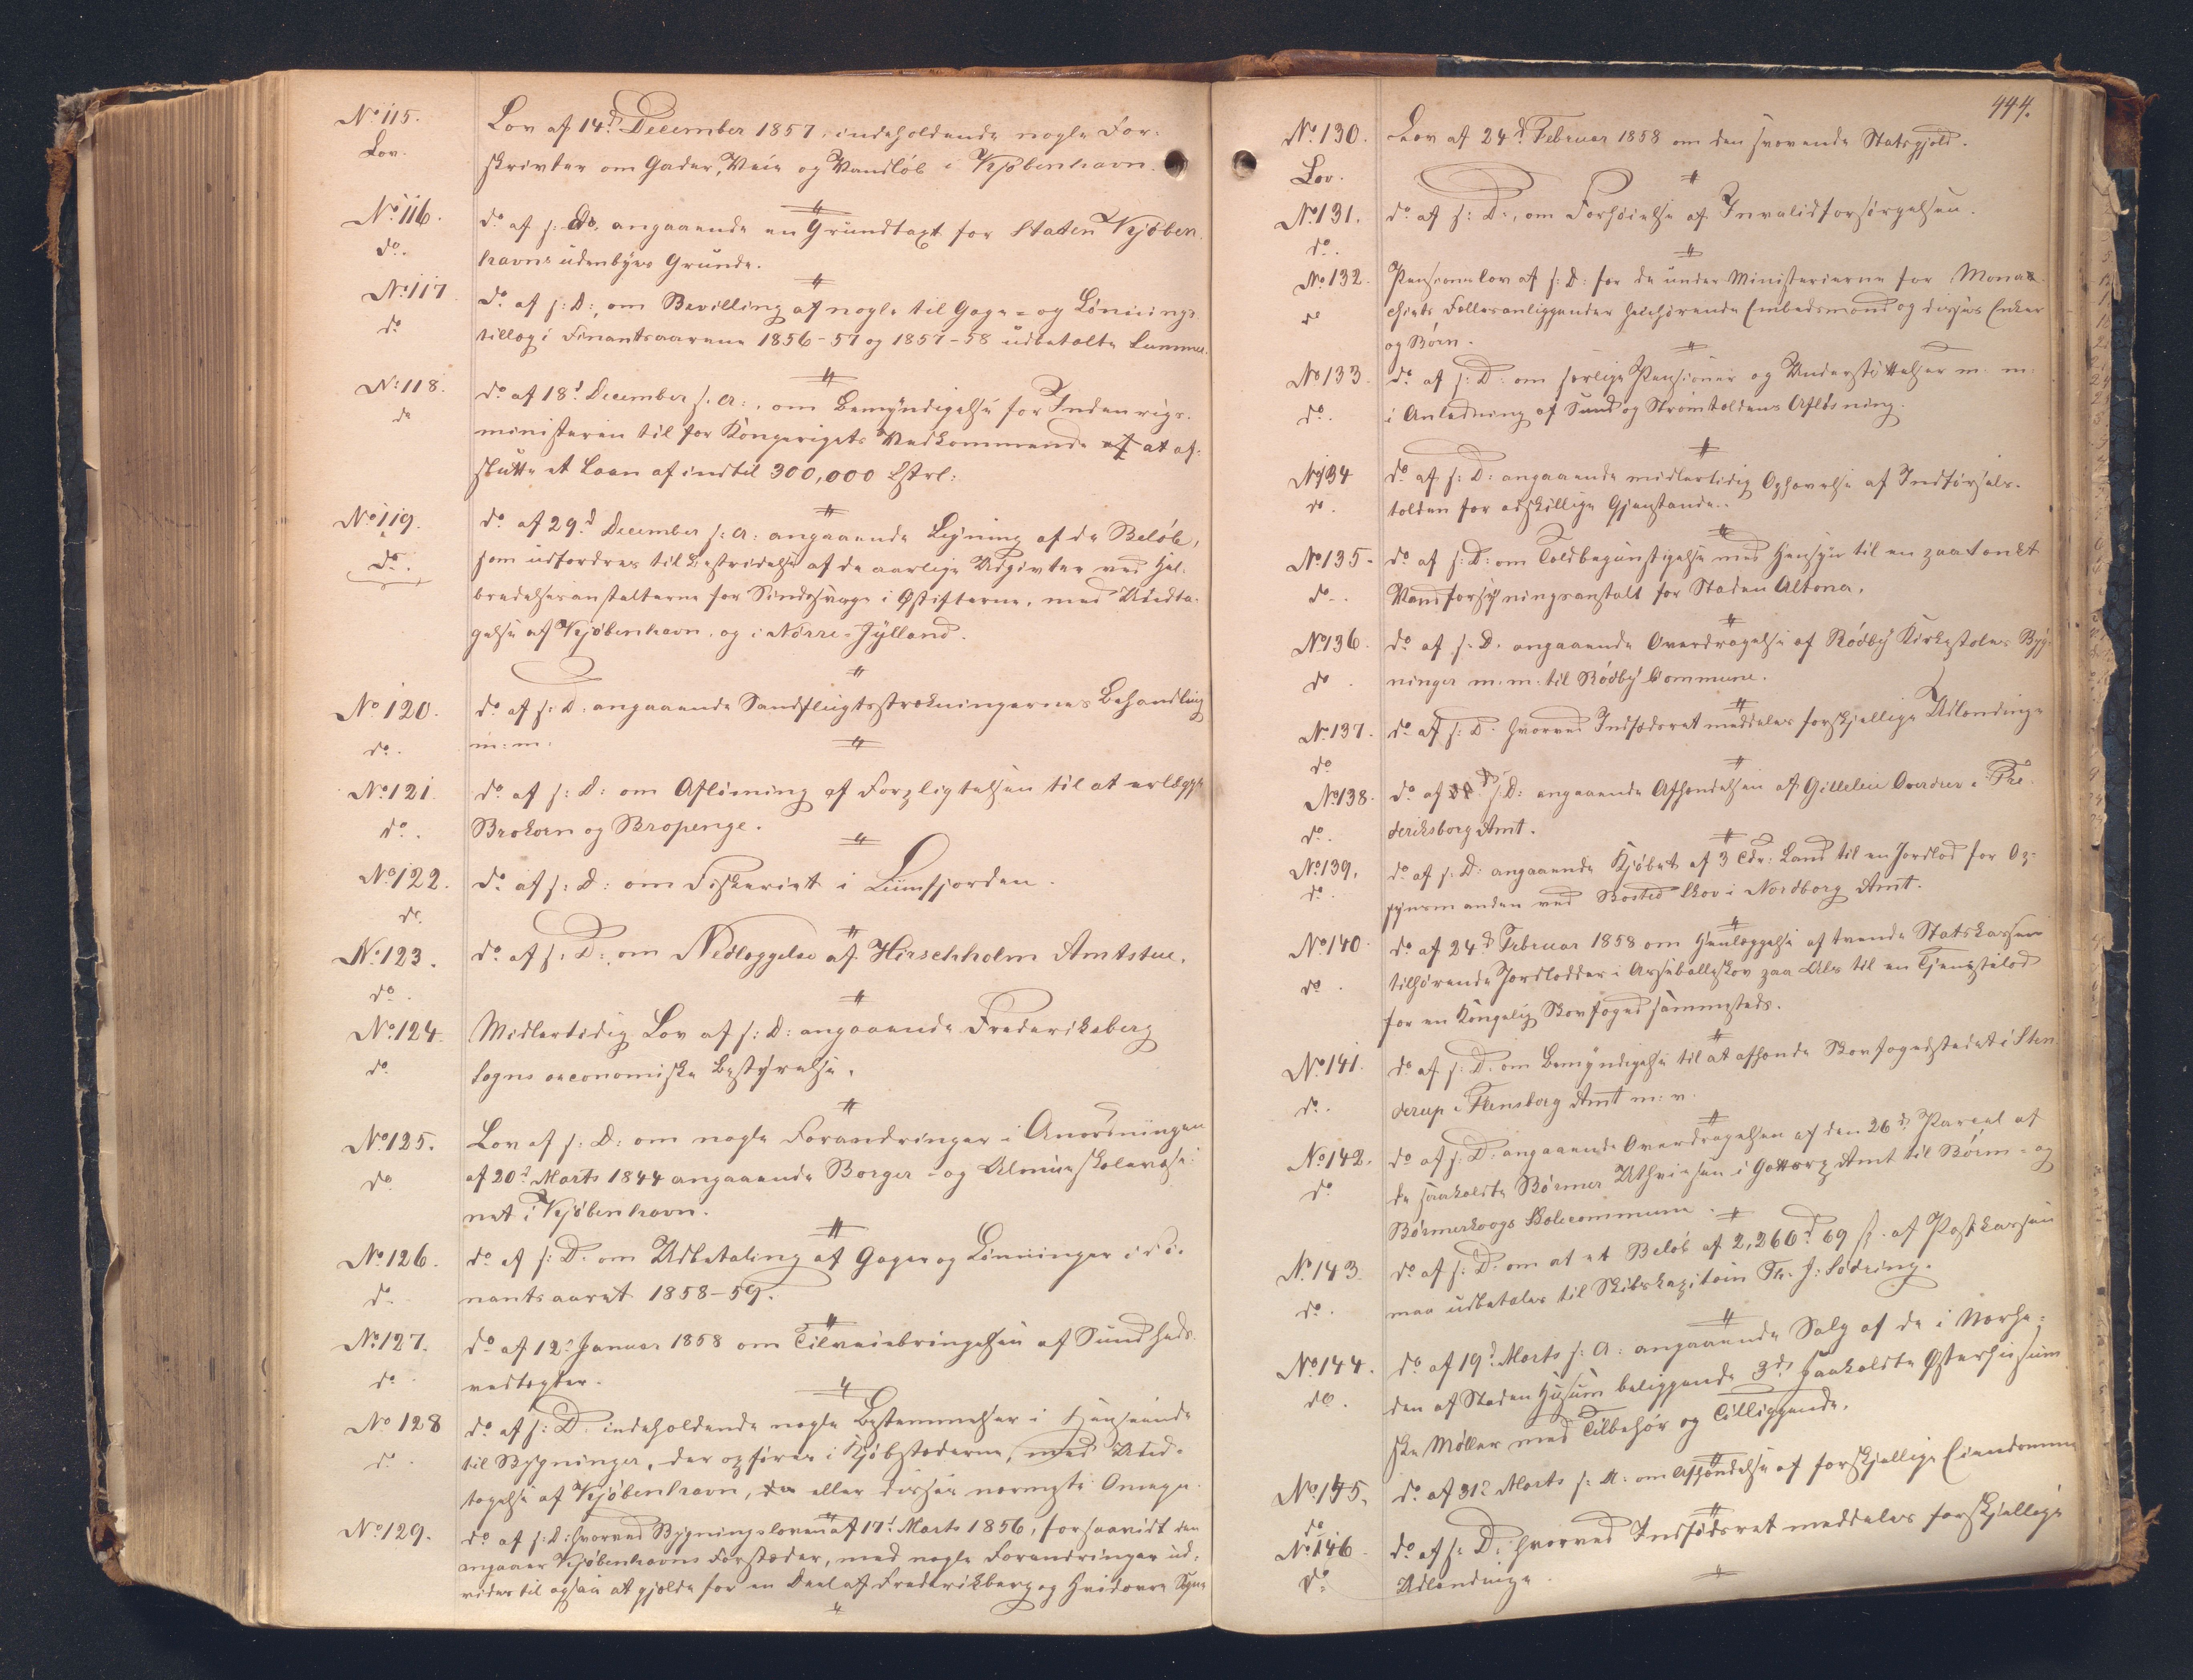 No 115. Lov af 14d December 1857, indeholdende nogle For-
Lov. skrivter om Gader, Veie og Vandløb i Kjøbenhavn.
No 116. do af s: Do. angaaende en Grundtaxt for Staden Kjøben-
do. havns udenbyes Grunde.
No 117 do af s: D:, om Bevilling af nogle til Gage- og Lønnings-
do tillæg i Finantsaarene 1856-57 og 1857-58 udbetalte Summer.
No 118. do af 18d December s. A:, om Bemyndigelse for Indenrigs-
do ministeren til for Kongerigets Vedkommende at af-
slutte et Laan af indtil 300,000 Lstrl:
No 119. do af 29d December s: A: angaaende Ligning af de Beløb,
do. som udfordres til Bestridelse af de aarlige Udgivter ved Hel-
bredelsesanstalterne for Sindssvage i Østifterne, med Undta-
gelse af Kjøbenhavn, og i Nørre-Jylland.
No 120. do af s: D: angaaende Sandflugtsstrækningernes Behandling
do. m: m:
No 121. do af s: D: om Afløsning af Forpligtelsen til at erlægge
do. Brokorn og Bropenge.
No 122. do af s: D: om Fiskeriet i Liimfjorden.
do.
No 123. do af s: D: om Nedlæggelse af Hirschholm Amtstue.
do.
No 124. Midlertidig Lov af s: D: angaaende Frederiksberg
do. Sogns oeconomiske Bestyrelse.
No 125. Lov af s: D: om nogle Forandringer i Anordningen
do. af 20d Marts 1844 angaaende Borger- og Almueskolevæse-
net i Kjøbenhavn.
No 126. do af s: D. om Udbetaling af Gager og Lønninger i Fi-
do. nantsaaret 1858-59.
No 127. do af 12d Januar 1858 om Tilveiebringelsen af Sundheds-
do. vedtægter.
No 128 do af s: D. indeholdende nogle Bestemmelser i Henseende
do. til Bygninger, der opføres i Kjøbstæderne, med Und-
tagelse af Kjøbenhavn, eller disses nærmeste Omegn.
No 129. do af s: D: hvorved Bygningsloven af 17d Marts 1856, forsaavidt den
angaaer Kjøbenhavns Forstæder, med nogle Forandringer ud-
vides til ogsaa at gjelde for en Deel af Frederiksberg og Hvidovre Sogne
444.
No 130. Lov af 24d Februar 1858 om den svævende Statsgjæld.
Lov.
No 131. do af s: D:, om Forhøielse af Invalidforsørgelsen.
do.
No 132. Pensionslov af s: D: for de under Ministerierne for Monar-
do chiets Fællesanliggender henhørende Embedsmænd og disses Enker
og Børn.
No 133. do af s: D: om særlige Pensioner og Understøttelser m. m:
do. i Anledning af Sund og Strømtoldens Afløsning.
No 134 do af s: D: angaaende midlertidig Ophævelse af Indførsels-
do. tolden for adskillige Gjenstande.
No 135. do af s: D: om Toldbegunstigelse med Hensyn til en paatænkt
do. Vandforsyningsanstalt for Staden Altona.
No 136. do af s: D. angaaende Overdragelse af Rødby Kirkestolers Byg-
do. ninger m: m: til Rødby Commune.
No 137. do af s: D. hvorved Indfødsret meddeles forskjellige Udlændinge
do
No 138. do af s: D: angaaende Afhændelsen af Gilleleie Overdrev i Fre-
do. deriksborg Amt.
No 139. do af s: D: angaaende Kjøbet af 3 Tdr: Land til en Jordlod for Op-
do. synsmanden ved Bosted Skov i Nordborg Amt.
No 140. do af 24d Februar 1858 om Henlæggelse af tvende Statskassen
do. tilhørende Jordlodder i Arseballeskov paa Als til en Tjenestelod
for en Kongelig Skovfoged sammesteds.
No 141. do af s: D. om Bemyndigelse til at afhænde Skovfogedstedet i Sten-
do. derup i Flensborg Amt m: v.
No 142. do af s: D. angaaende Overdragelsen af den 26de Parcel af
do de saakaldte Børmer Uthviesen i Gottorp Amt til Børm- og
Børmerkoogs Skolecommune.
No 143. do af s: D. om at et Beløb af 2,260d 69 s. af Postkassen
do. maa udbetales til Skibskapitain Th. J: Sødring.
No 144. do af 19d Marts s: A: angaaende Salg af de i Nærhe-
do. den af Staden Husum beliggende 3de saakaldte Østerhusum-
ske Møller med Tilbehør og Tilliggende.
No 145. do af 31d Marts s: A: om Afhændelse af forskjellige Eiendomme
do
No 146. do af s: D. hvorved Indfødsret meddeles forskjellige
do. Udlændinge.